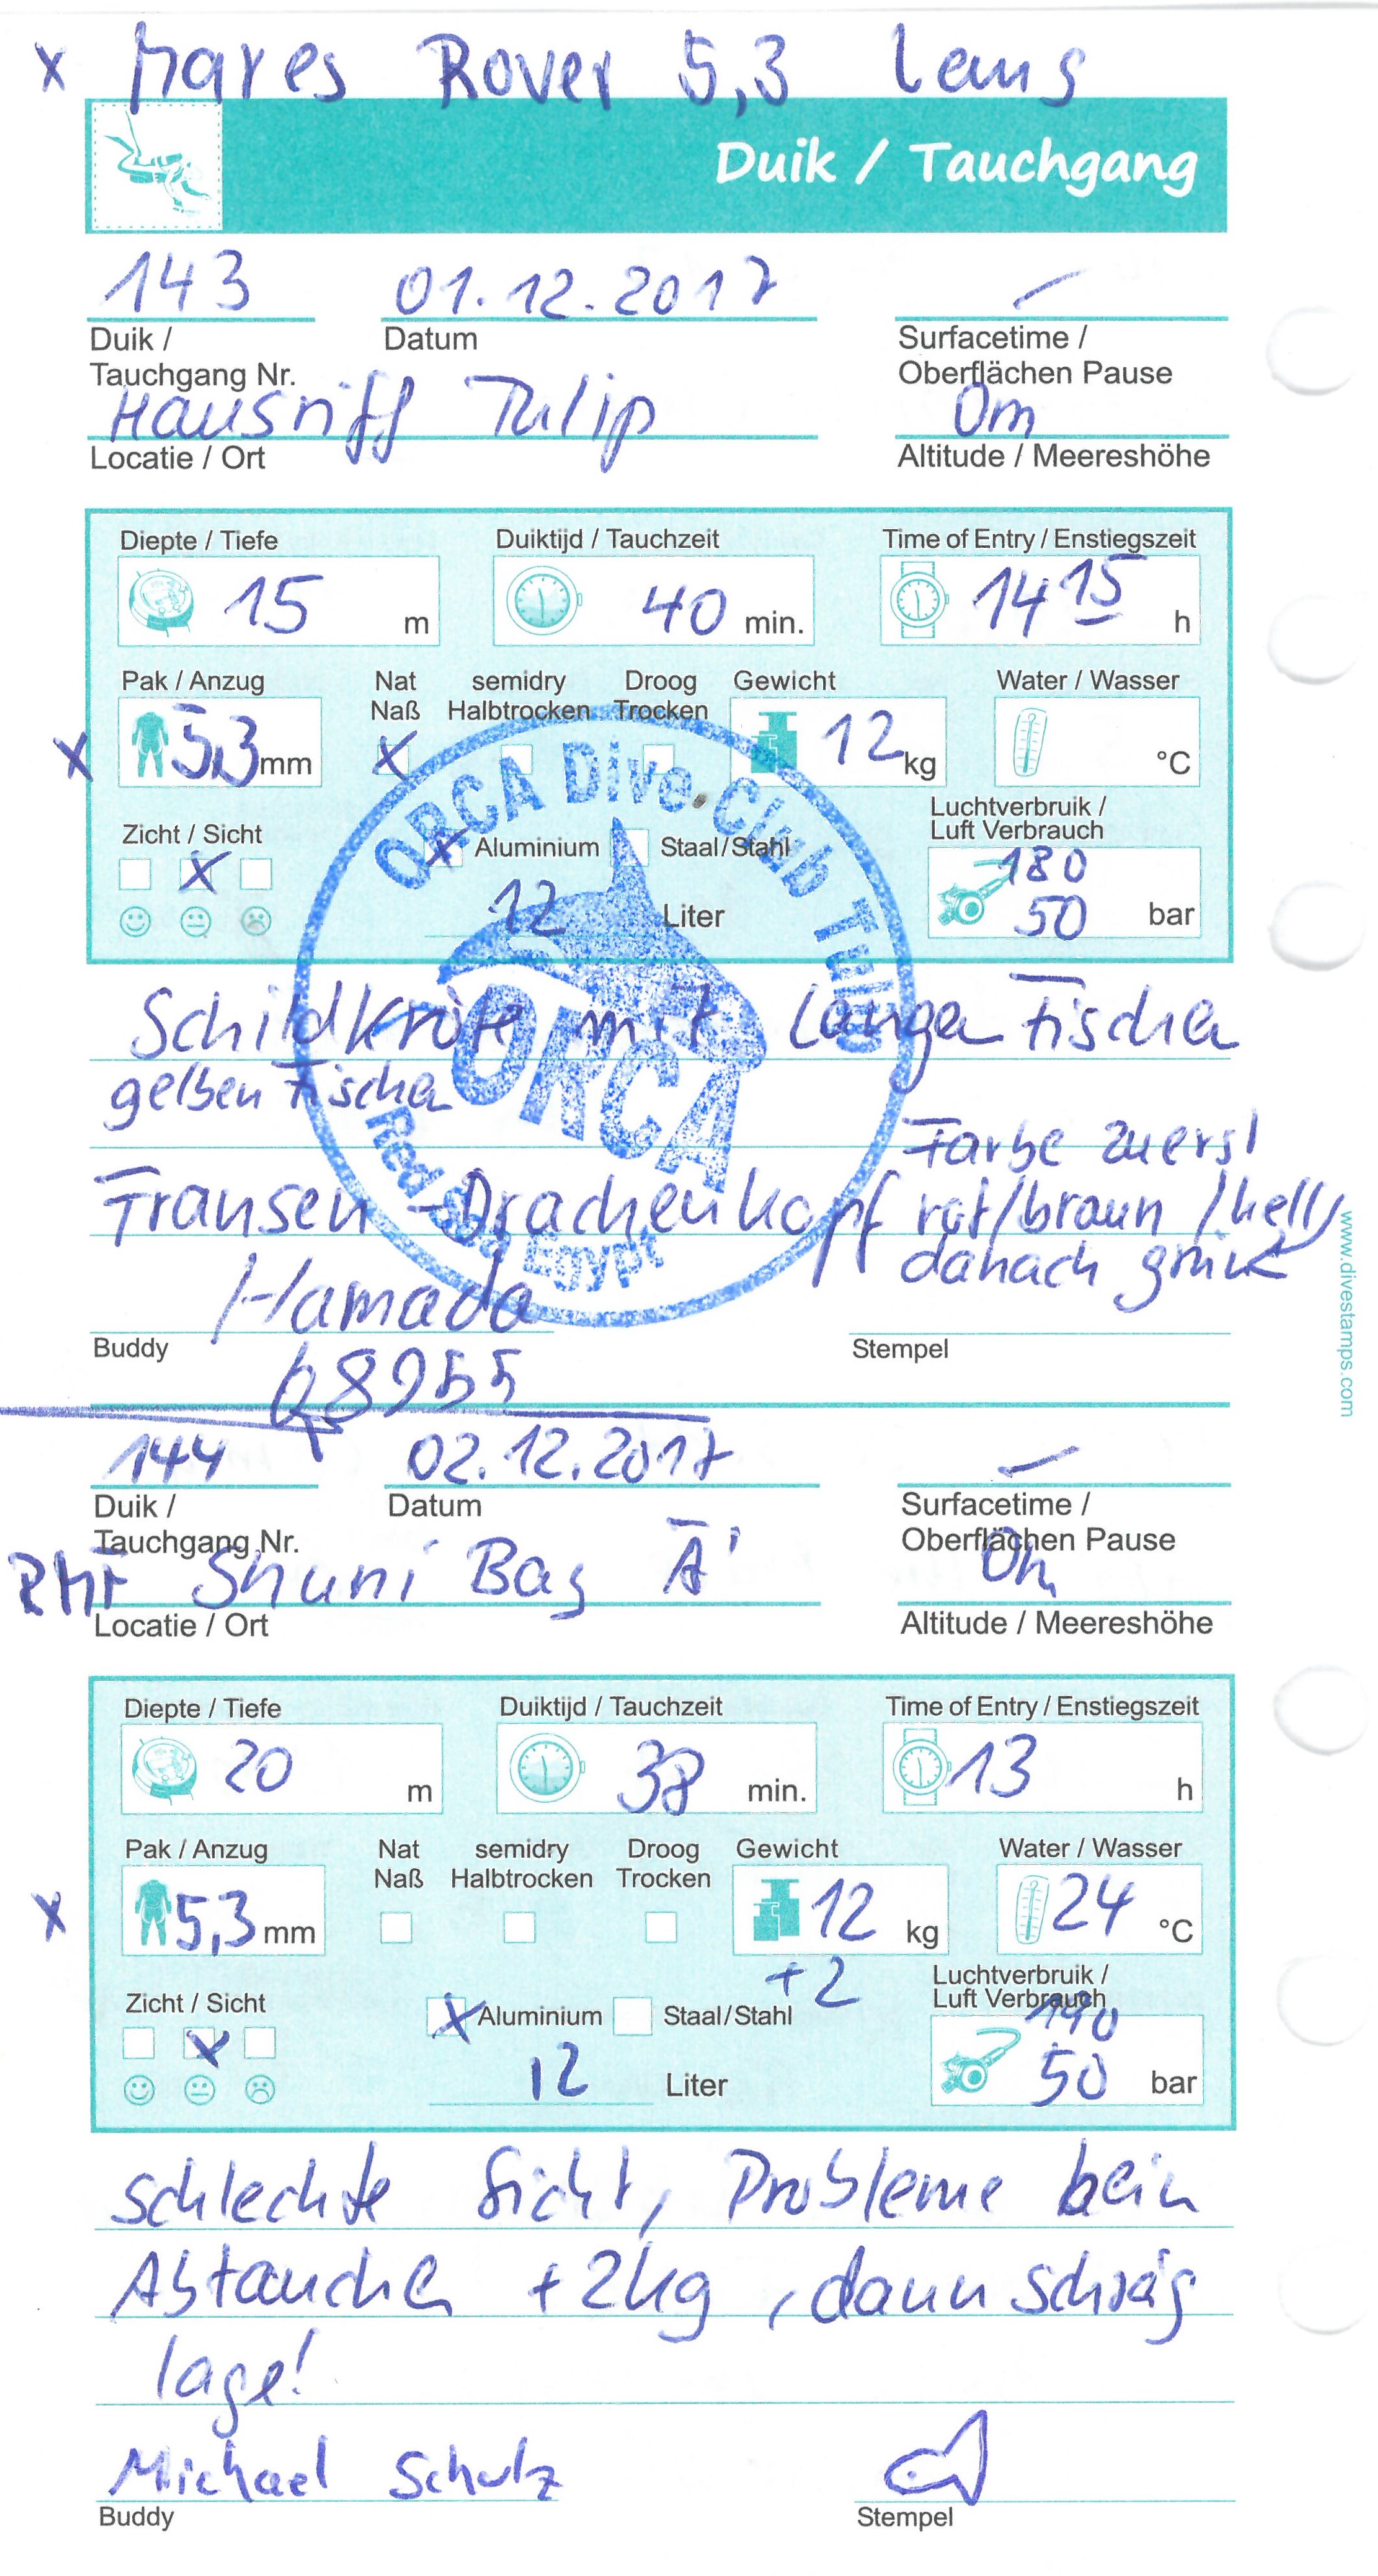 x Mares Rover 5,3 lang
Duik / Tauchgang
143 01.12.2017 —
Duik / Datum Surfacetime /
Tauchgang Nr. Oberflächen Pause
Hausriff Tulip 0m
Locatie / Ort Altitude / Meereshöhe
Diepte / Tiefe Duiktijd / Tauchzeit Time of Entry / Enstiegszeit
15 m 40 min. 14 15 h
Pak / Anzug Nat semidry Droog Gewicht Water / Wasser
Naß Halbtrocken Trocken
x 5,3 mm x 12 kg °C
Zicht / Sicht Luchtverbruik /
Luft Verbrauch
x x Aluminium Staal/Stahl 180
12 Liter 50 bar
ORCA Dive Club Tulip
ORCA
Red Sea Egypt
Schildkröte mit langen Fischen
gelben Fischen
Farbe zuerst
Fransen-Drachenkopf rot/braun/hell
danach grün
Hamada
Buddy Stempel
68955
www.divestamps.com
144 02.12.2017 —
Duik / Datum Surfacetime /
Tauchgang Nr. Oberflächen Pause
Shuni Bay 0m
Locatie / Ort Altitude / Meereshöhe
Diepte / Tiefe Duiktijd / Tauchzeit Time of Entry / Enstiegszeit
20 m 38 min. 13 h
Pak / Anzug Nat semidry Droog Gewicht Water / Wasser
Naß Halbtrocken Trocken
x 5,3 mm 12 kg 24 °C
+2
Zicht / Sicht Luchtverbruik /
Luft Verbrauch
x x Aluminium Staal/Stahl 190
12 Liter 50 bar
schlechte Sicht, Probleme beim
Abtauchen +2kg, dann schräg
lage!
Michael Schulz
Buddy Stempel